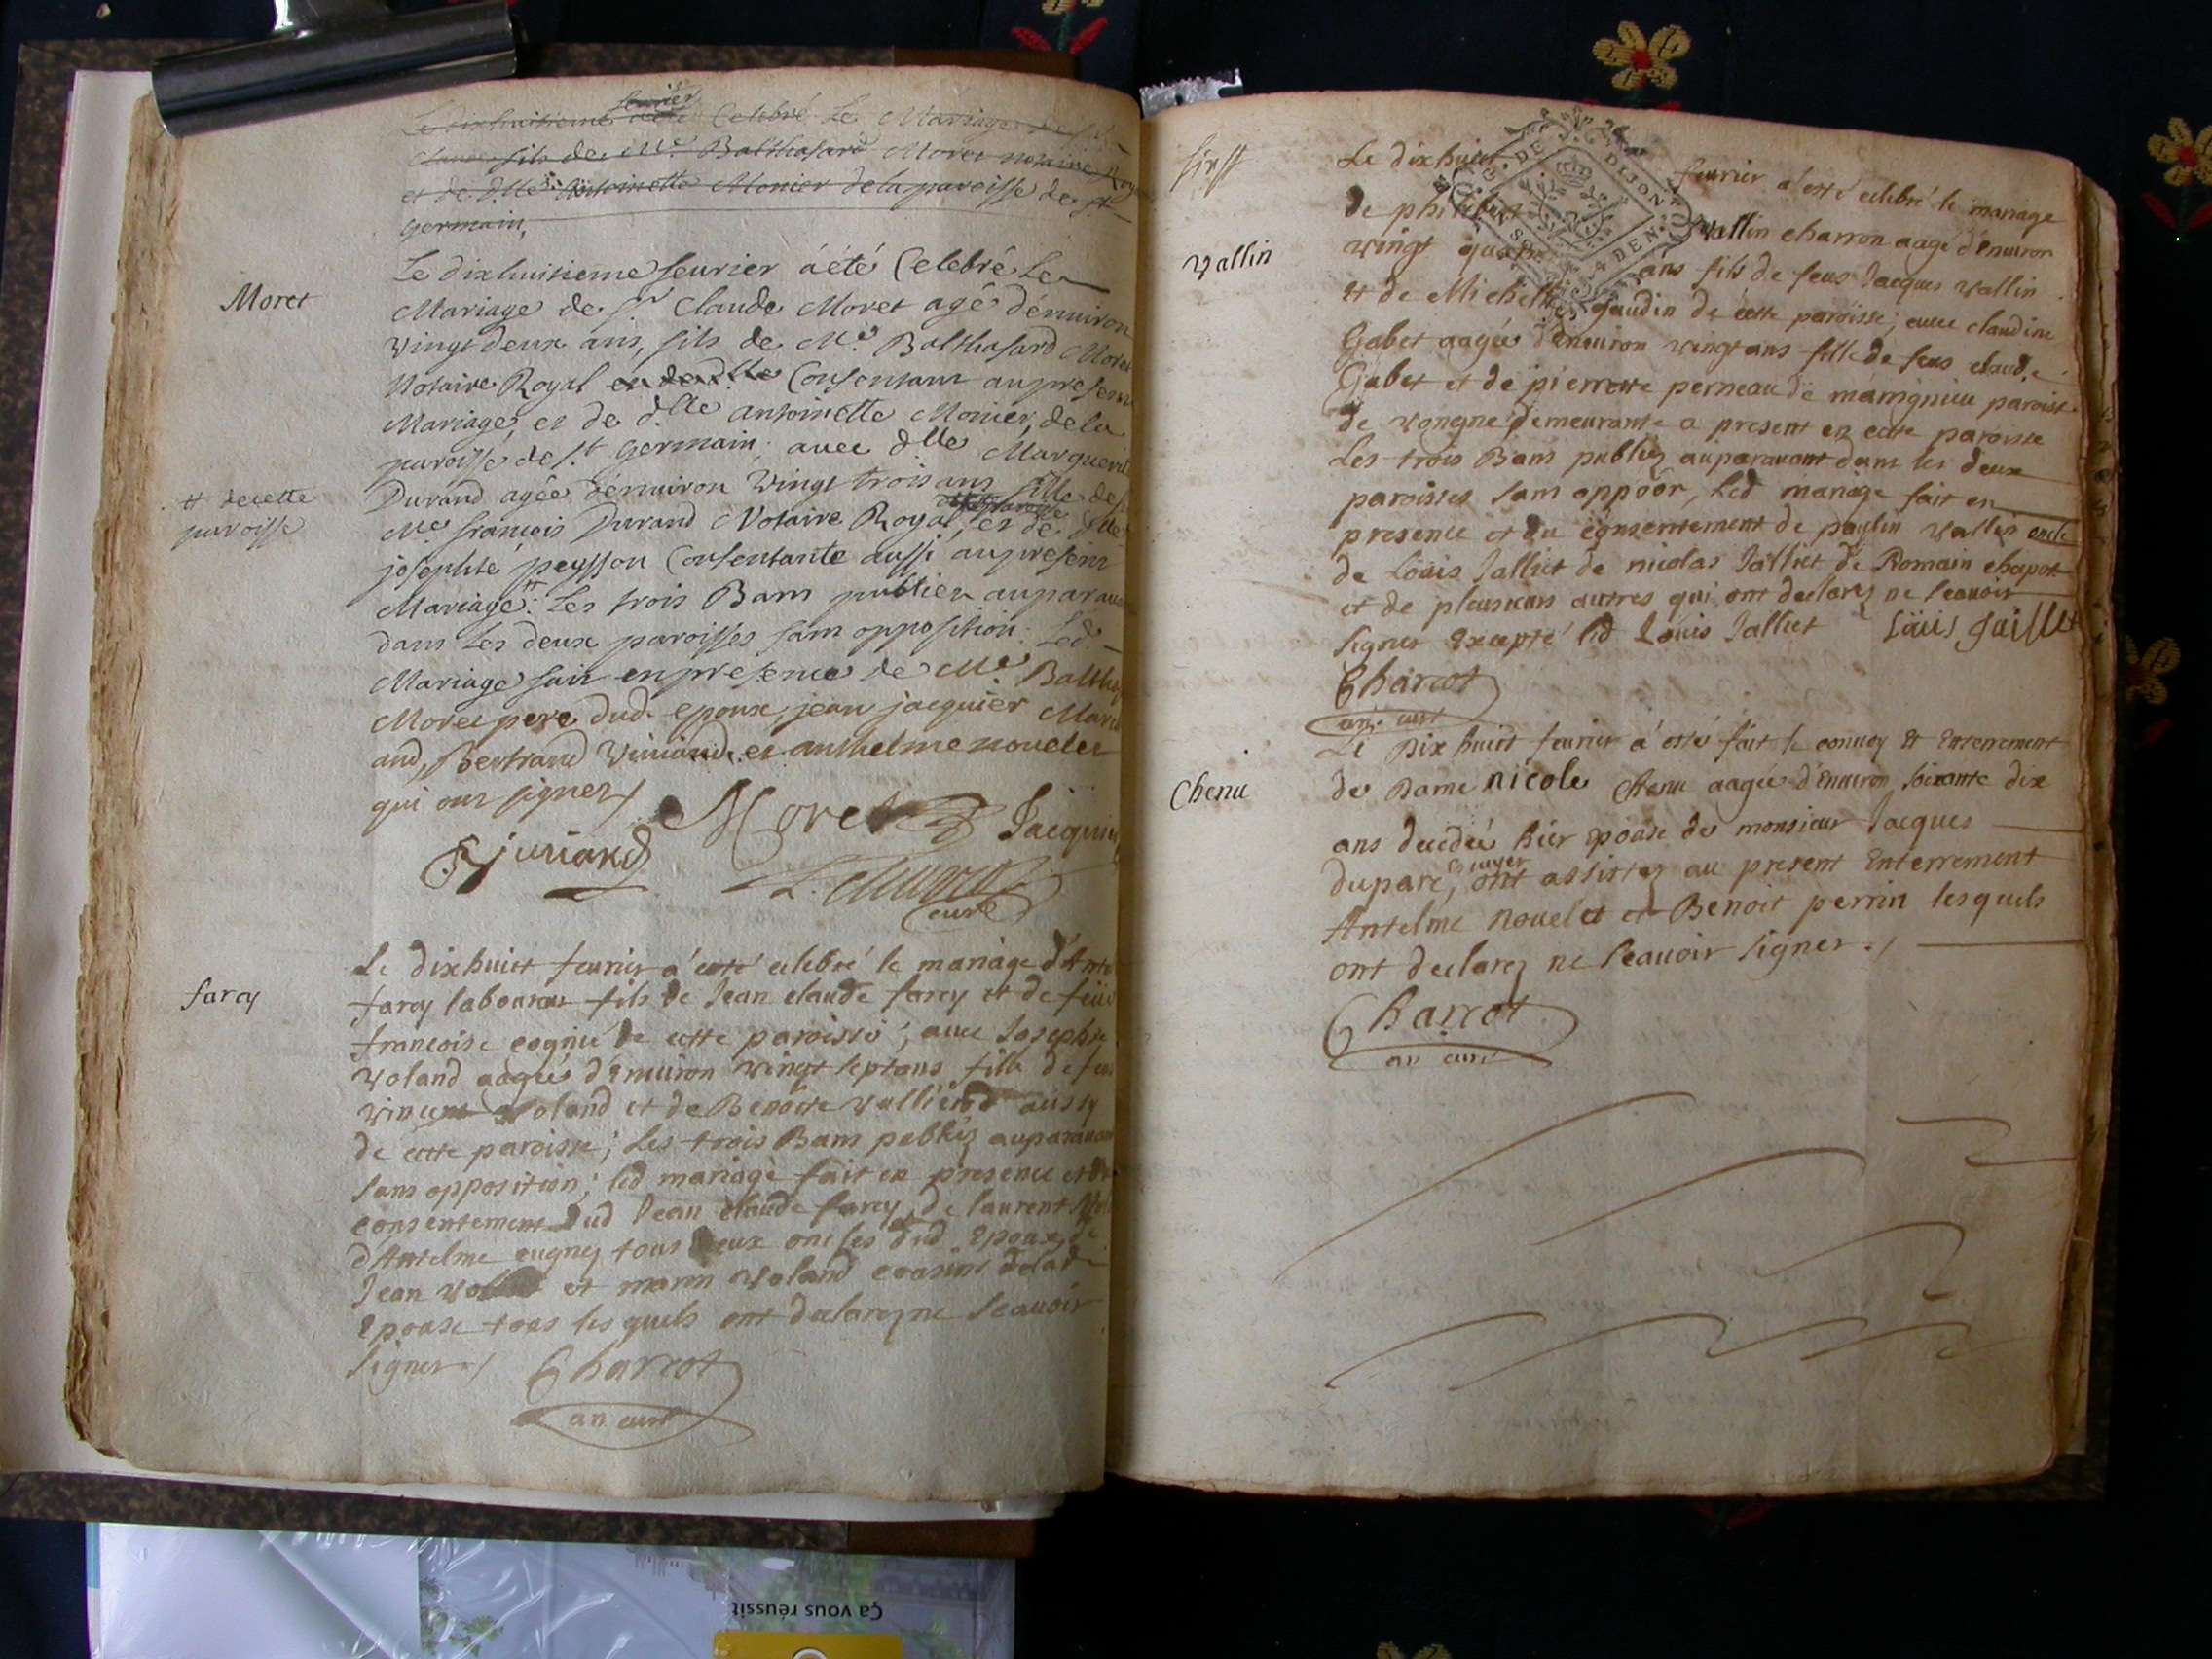 feurier
Le dixhuitieme Celebré Le Mariage de Sr
Claude fils de Me. Balthasard Moret notaire Roy
et de dlle. Antoinette Monier de la paroisse de St
germain,
Moret
Le dixhuitieme feurier á été Celebré Le
Mariage de Sr Claude Moret agé d'enuiron
vingt deux ans, fils de Me. Balthasard Moret
Notaire Royal et de dlle Consentant au present
Mariage, et de dlle antoinette Monier, de la
paroisse de St germain; auec dlle Marguerit
Durand agée d'enuiron vingt trois ans fille de
Me. francois Durand Notaire Royal, et de dlle
# de cette
paroisse
josephte peysson Consentante aussi au present
Mariage #. Les trois Bans publiez auparaua
dans Les deux paroisses sans opposition: Led.
Mariage fait en presence de Me. Baltha
Moret pere dud. epoux, jean jacquier March
and, Bertrand Viuiand et anthelme nouelet
qui ont signez /.
Moret Jacquie
Viuiand
curé
farcy
Le dixhuict feurier a'esté celebré le mariage d'Anto
farcy laboureur fils de Jean claude farcy et de feüe
francoise cognié de cette paroisse; auec Josephte
Voland aagée d'Enuiron vingt sept ans fille de feu
vincent Voland et de Benoite vallierod aussy
de cette paroisse; Les trois Bans publiéz auparauant
sans opposition; led mariage fait en presence et du
consentement dud Jean claude farcy, de laurent
d'Antelme cugney tous deux oncles dud Epoux, de
Jean et marin Voland cousins de lad
Epouse tous les quels ont declarez ne scauoir
signer ./
Charrot
an curé
G. DE DIJON
S. 4 DEN.
vallin
Le dixhuict feurier a'esté celebré le mariage
de philibert vallin charron aagé d'enuiron
vingt quatre ans fils de feus Jacques vallin
et de Michelle gaudin de cette paroisse; auec claudine
Gabet aagée d'enuiron vingt ans fille de feus claude
Gabet et de pierrette perneau de marignieu paroisse
de vongne demeurante a present en cette paroisse
Les trois Bans publiéz auparauant dans les deux
paroisses sans oppoôn, Led mariage fait en
presence et du consentement de paulin vallin oncle
de Loüis Jalliet de nicolas Jalliet de Romain chapot
et de pleusieurs autres qui ont declarez ne scauoir
signer Excepté led Louis Jalliet Loüis Jaillet
Charrot
an. curé
Chenu
Le Dix huict feurier a'esté fait le conuoy Et Enterrement
de Dame nicole Chenu aagée d'Enuiron soixante dix
ans decedée hier Epouse de monsieur Jacques
duparc, Ecuyer ont assistez au present Enterrement
Antelme nouelet et Benoit perrin lesquels
ont declarez ne scauoir signer ./
Charrot
an curé
Ça vous réussit